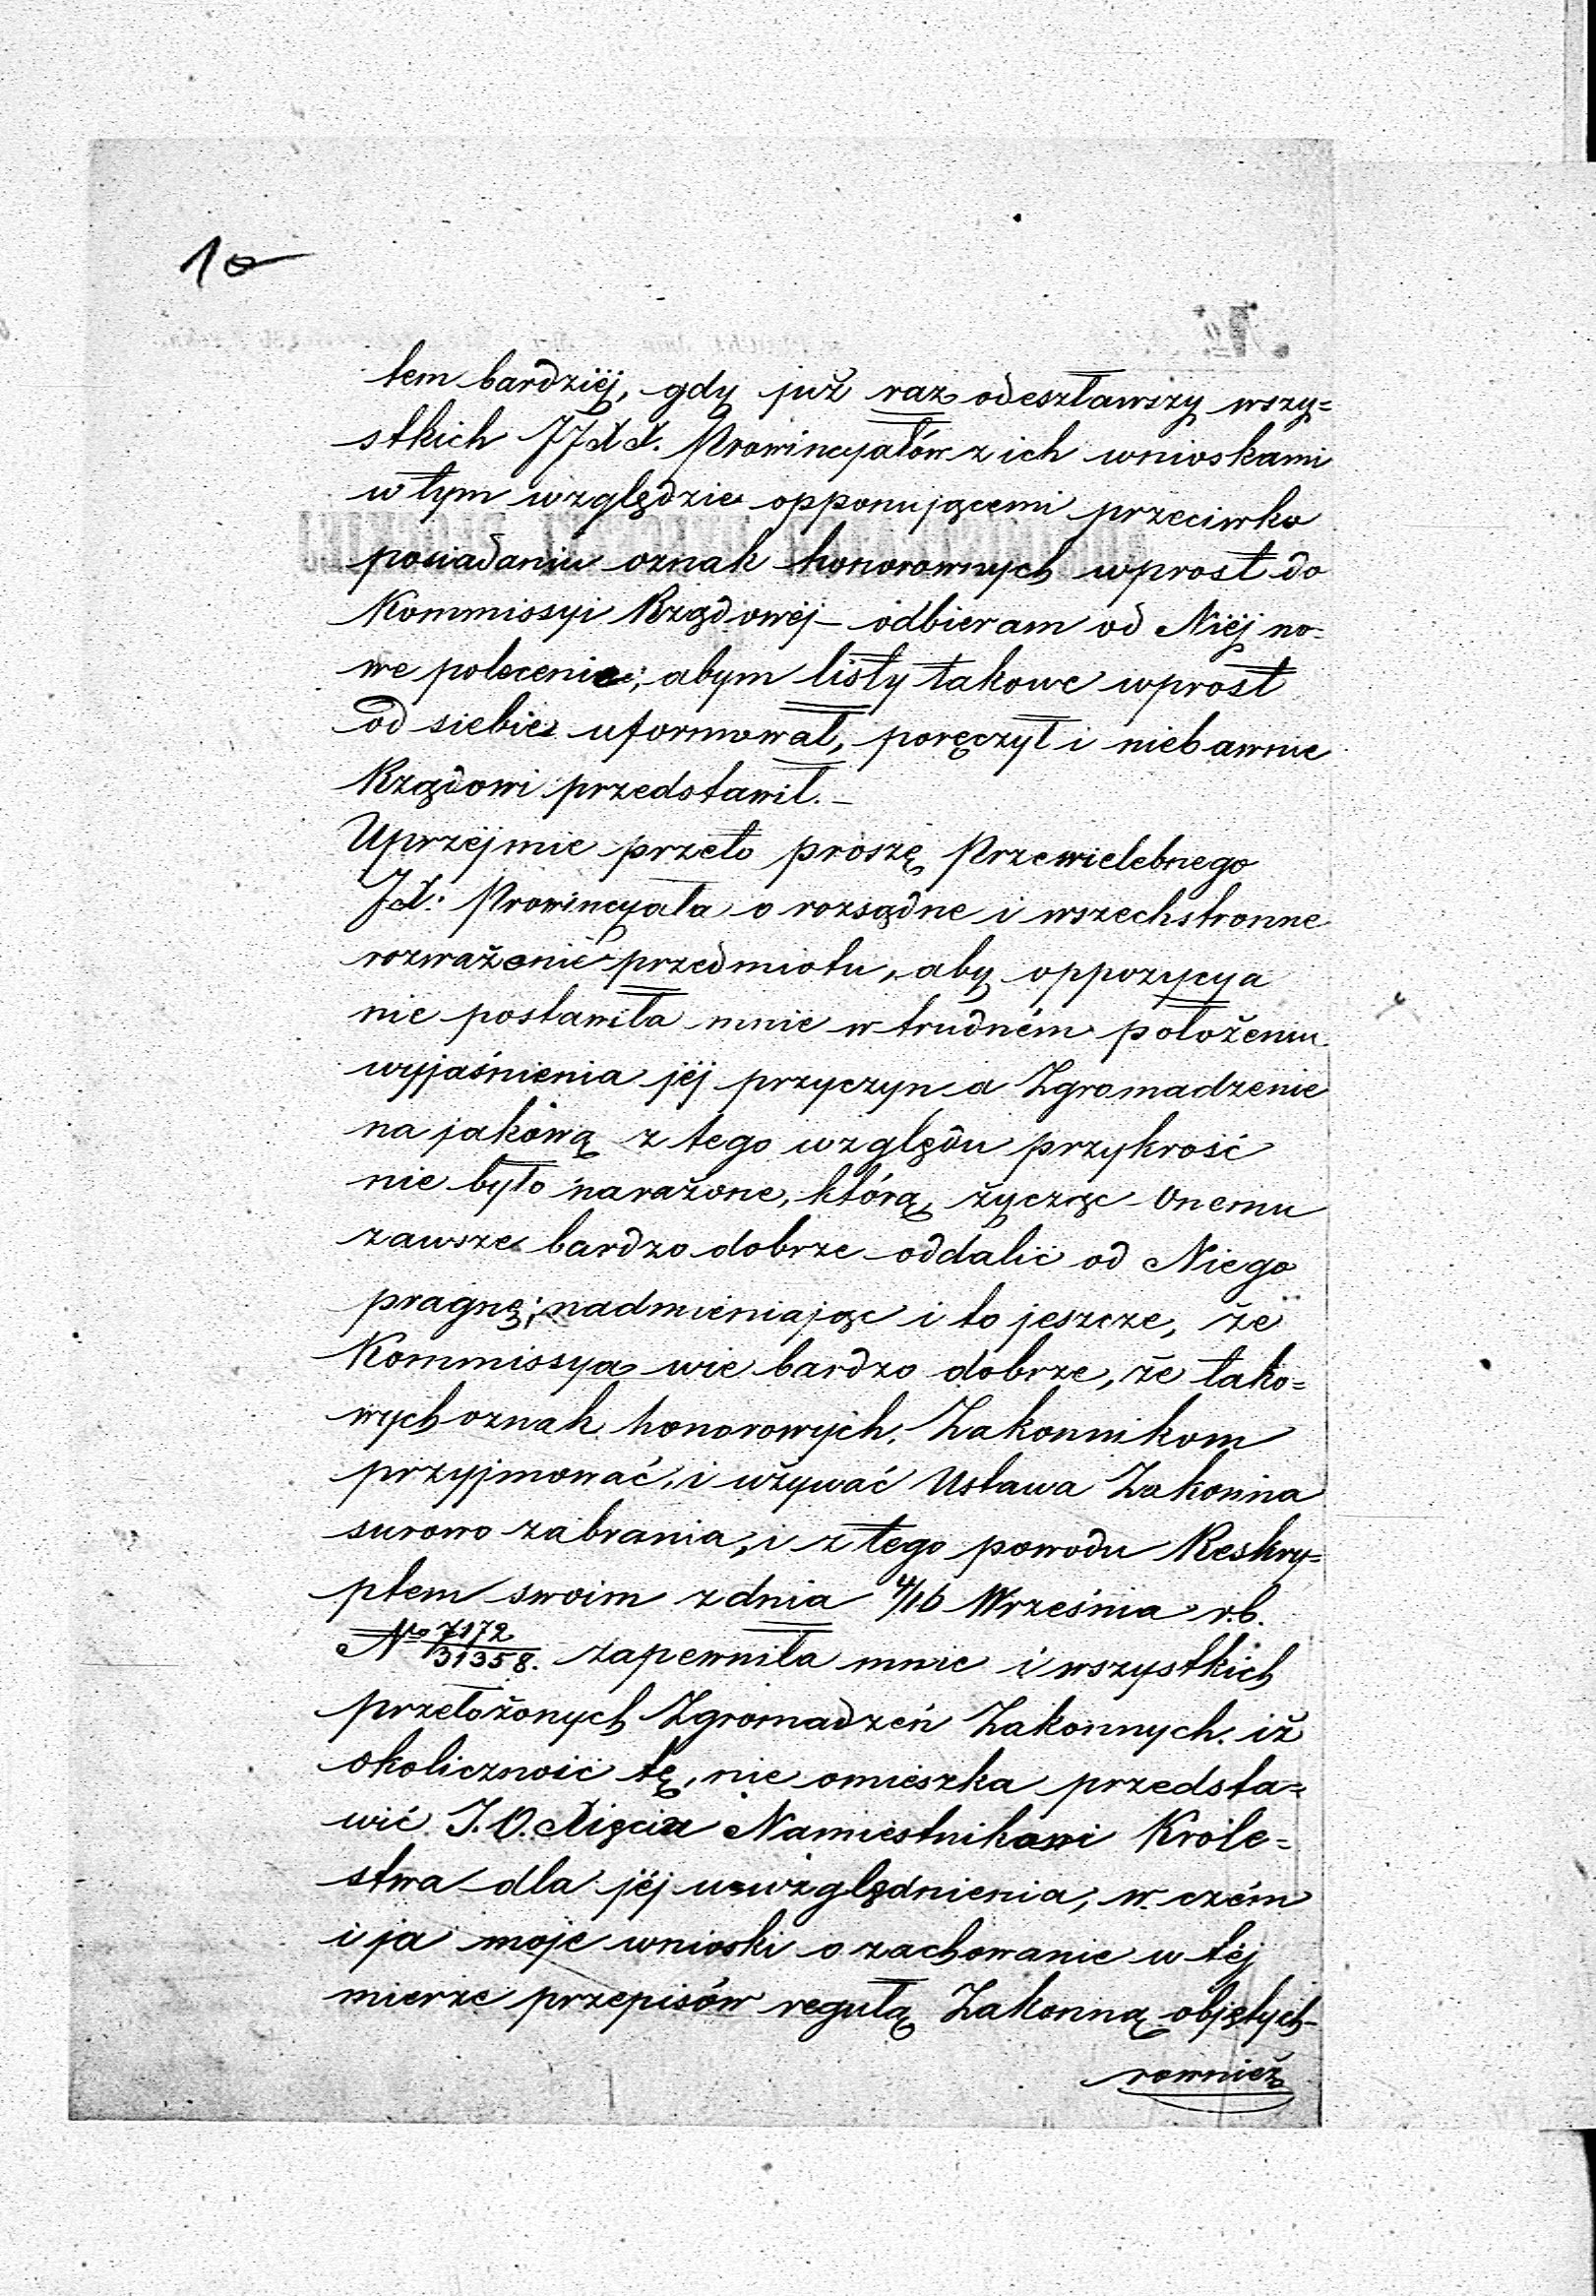 10
tem bardziéj, gdy już raz odesławszy wszy=
stkich JJXX. Prowincyałów z ich wnioskami
w tym względzie opponującemi przeciwko
posiadaniu oznak honorowych wprost do
Kommissyi Rządowéj – odbieram od Niéj no=
we polecenie; abym listy takowe wprost
od siebie uformował, poręczył i niebawnie
Rządowi przedstawił. –
Uprzéjmie przeto proszę Przewielebnego
JX: Prowincyała o rozsądne i wszechstronne
rozważenie przedmiotu, aby oppozycya
nie postawiła mnie w trudném położeniu
wyjaśnienia jéj przyczyn a Zgromadzenie
na jakową z tego względu przykrość
nie było narażone, którą, życząc Onemu
zawsze bardzo dobrze oddalić od Niego
pragnę; nadmieniając i to jeszcze, że
Kommissya wie bardzo dobrze, że tako=
wych oznak honorowych, Zakonnikom
przyjmować, i używać Ustawa Zakonna
surowo zabrania, i z tego powodu Reskry=
ptem swoim z dnia 4/16 Września r.b.
No 7172/31358. zapewniła mnie i wszystkich
przełożonych Zgromadzeń Zakonnych. iż
okoliczność tę, nie omieszka przedsta=
wić J.O. Xięciu Namiestnikowi Króle=
stwa dla jéj uwzględnienia, w czém
i ja moje wnioski o zachowanie w téj
mierze przepisów regułą Zakonną objętych
rownież